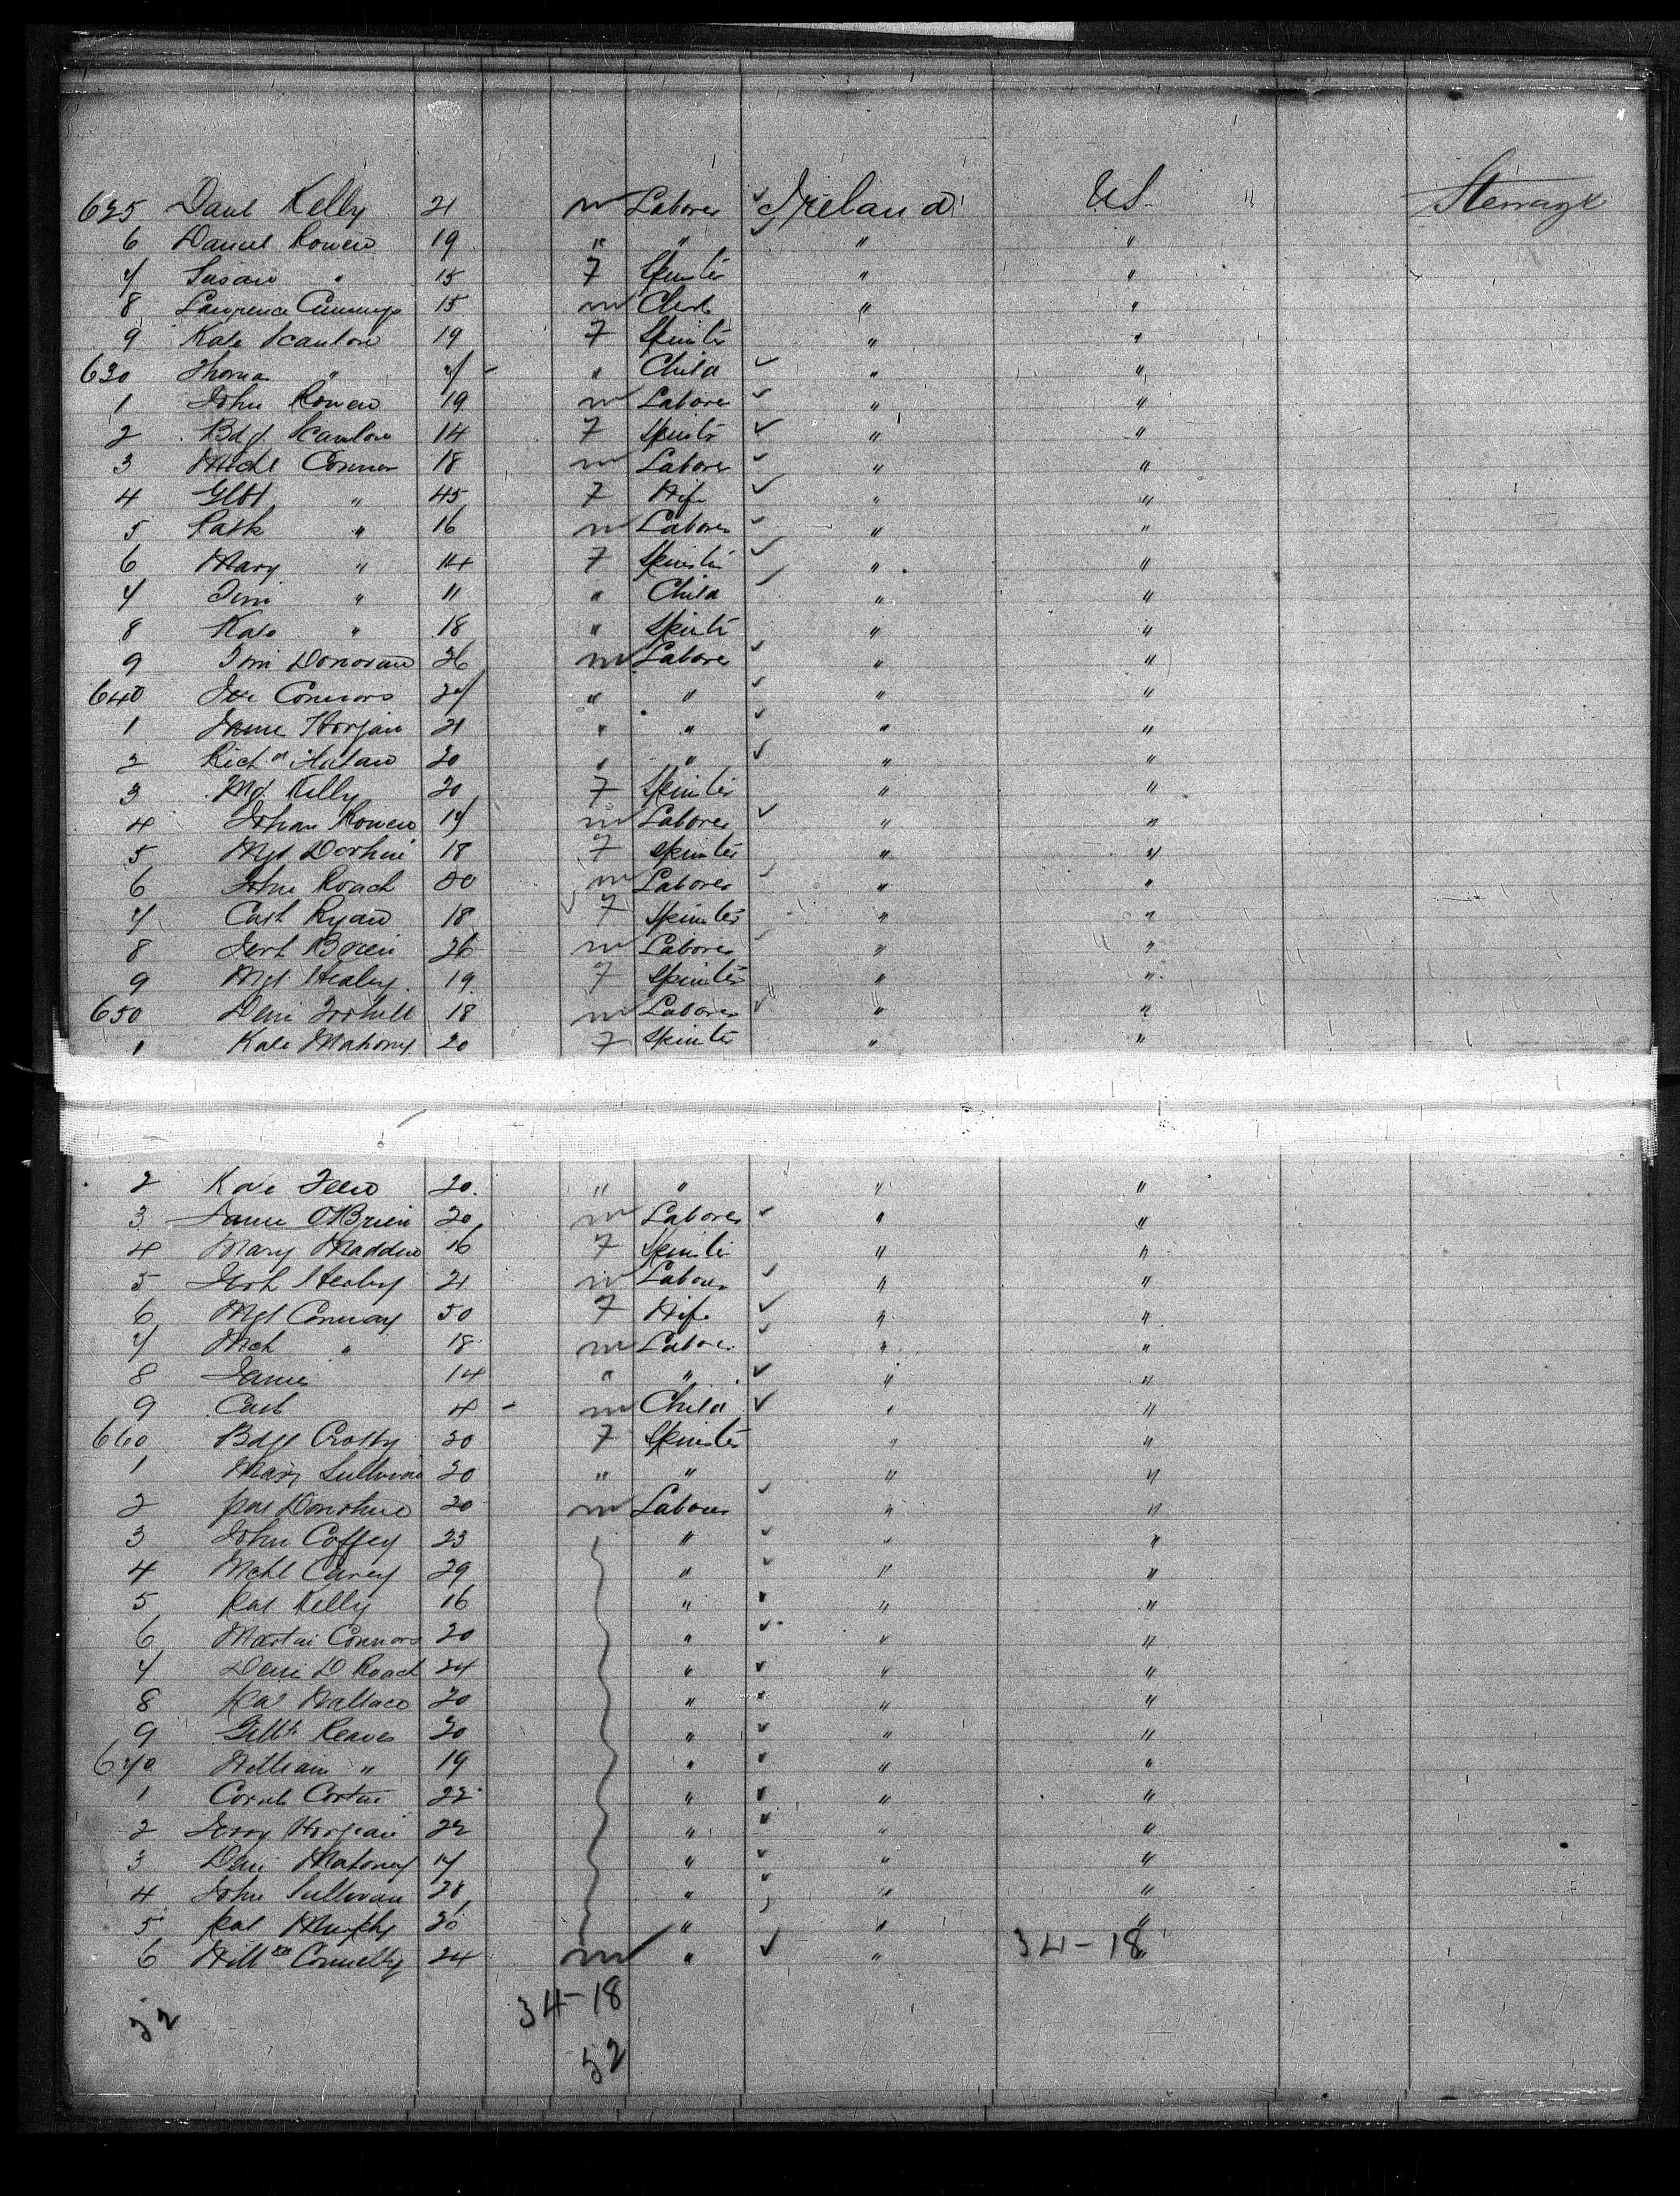 625 Danl Kelly 21 m Laborer ✓ Ireland US Steerage
6 Daniel 19 " " ✓ " "
7 Susan " 15 F Spinster " "
8 Lawrence Cummings 15 m Clerk " "
9 Kate Scanlon 19 F Spinster " "
630 Thomas " 7 - " Child ✓ " "
1 John 19 m Laborer ✓ " "
2 Bdgt Scanlon 14 F Spinster ✓ " "
3 Michl Connor 18 m Laborer ✓ " "
4 " 45 F Wife ✓ " "
5 Patk " 16 m Laborer ✓ " "
6 Mary " 14 F Spinster ✓ " "
7 " 11 " Child ✓ " "
8 Kate " 18 " Spinster " "
9 Tim Donovan 26 m Laborer ✓ " "
640 Connors 27 " " ✓ " "
1 James Horgan 21 " " ✓ " "
2 Richd 20 " " ✓ " "
3 Mgt Kelly 20 F Spinster " "
4 17 m Laborer ✓ " "
5 Mgt 18 F Spinster " "
6 John Roach m Laborer ✓ " "
7 Cath Ryan 18 F Spinster " "
8 Jerh Brien 26 m Laborer ✓ " "
9 Mgt Healey 19 F Spinster " "
650 Denis 18 m Laborer ✓ " "
1 Kate Mahony 20 F Spinster " "
2 Kate 20 " " " "
3 James O'Brien 20 m Laborer ✓ " "
4 Mary Madden 16 F Spinster " "
5 Jerh Healey 21 m Laborer ✓ " "
6 Mgt Conway 50 F Wife ✓ " "
7 Mch " 18 m Laborer ✓ " "
8 James 14 " " ✓ " "
9 Cath 4 - m Child ✓ " "
660 Bdgt Crotty 20 F Spinster " "
1 Mary Sullivan 20 " " " "
2 Pat Donohue 20 m Laborer ✓ " "
3 John Coffey 23 " ✓ " "
4 Mchl Carey 29 " ✓ " "
5 Pat Kelly 16 " ✓ " "
6 Martin Connors 20 " ✓ " "
7 Denis D Roach 24 " ✓ " "
8 Pat Wallace 20 " ✓ " "
9 Gilbt Reaves 20 " ✓ " "
670 William " 19 " ✓ " "
1 Cornls 22 " ✓ " "
2 Jerry Horgan 22 " ✓ " "
3 Denis Mahoney 17 " ✓ " "
4 John Sullivan 28 " ✓ " "
5 Pat Murphy 20 " ✓ " "
6 Willm Connelly 24 m " ✓ " 34-18 "
34-18
52
52